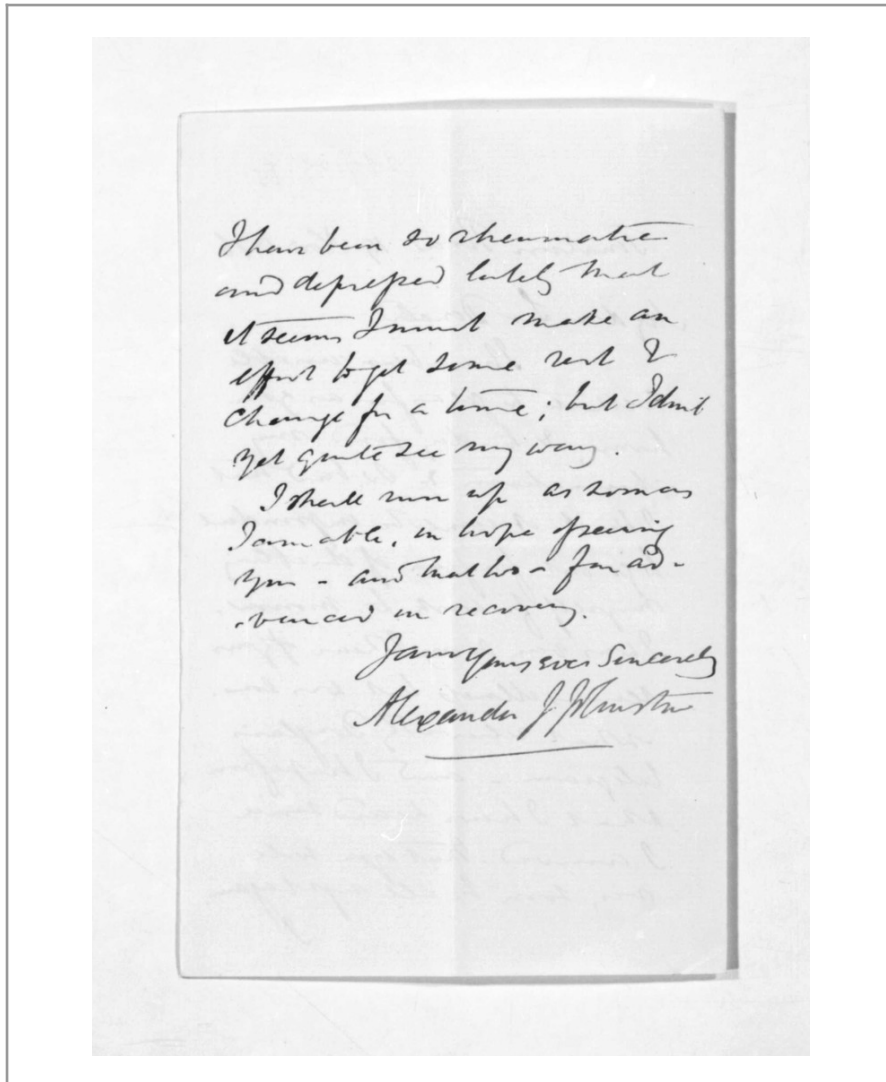 I have been so rheumatic
and depressed lately that
it seems I must make an
effort to get some rest &
change for a time; but I don't
yet quite see my way.
I shall run up as soon as
I am able, in hope of seeing
you - and that too - far ad-
-vanced in recovery.
I am Yours ever Sincerely
Alexander J Johnston